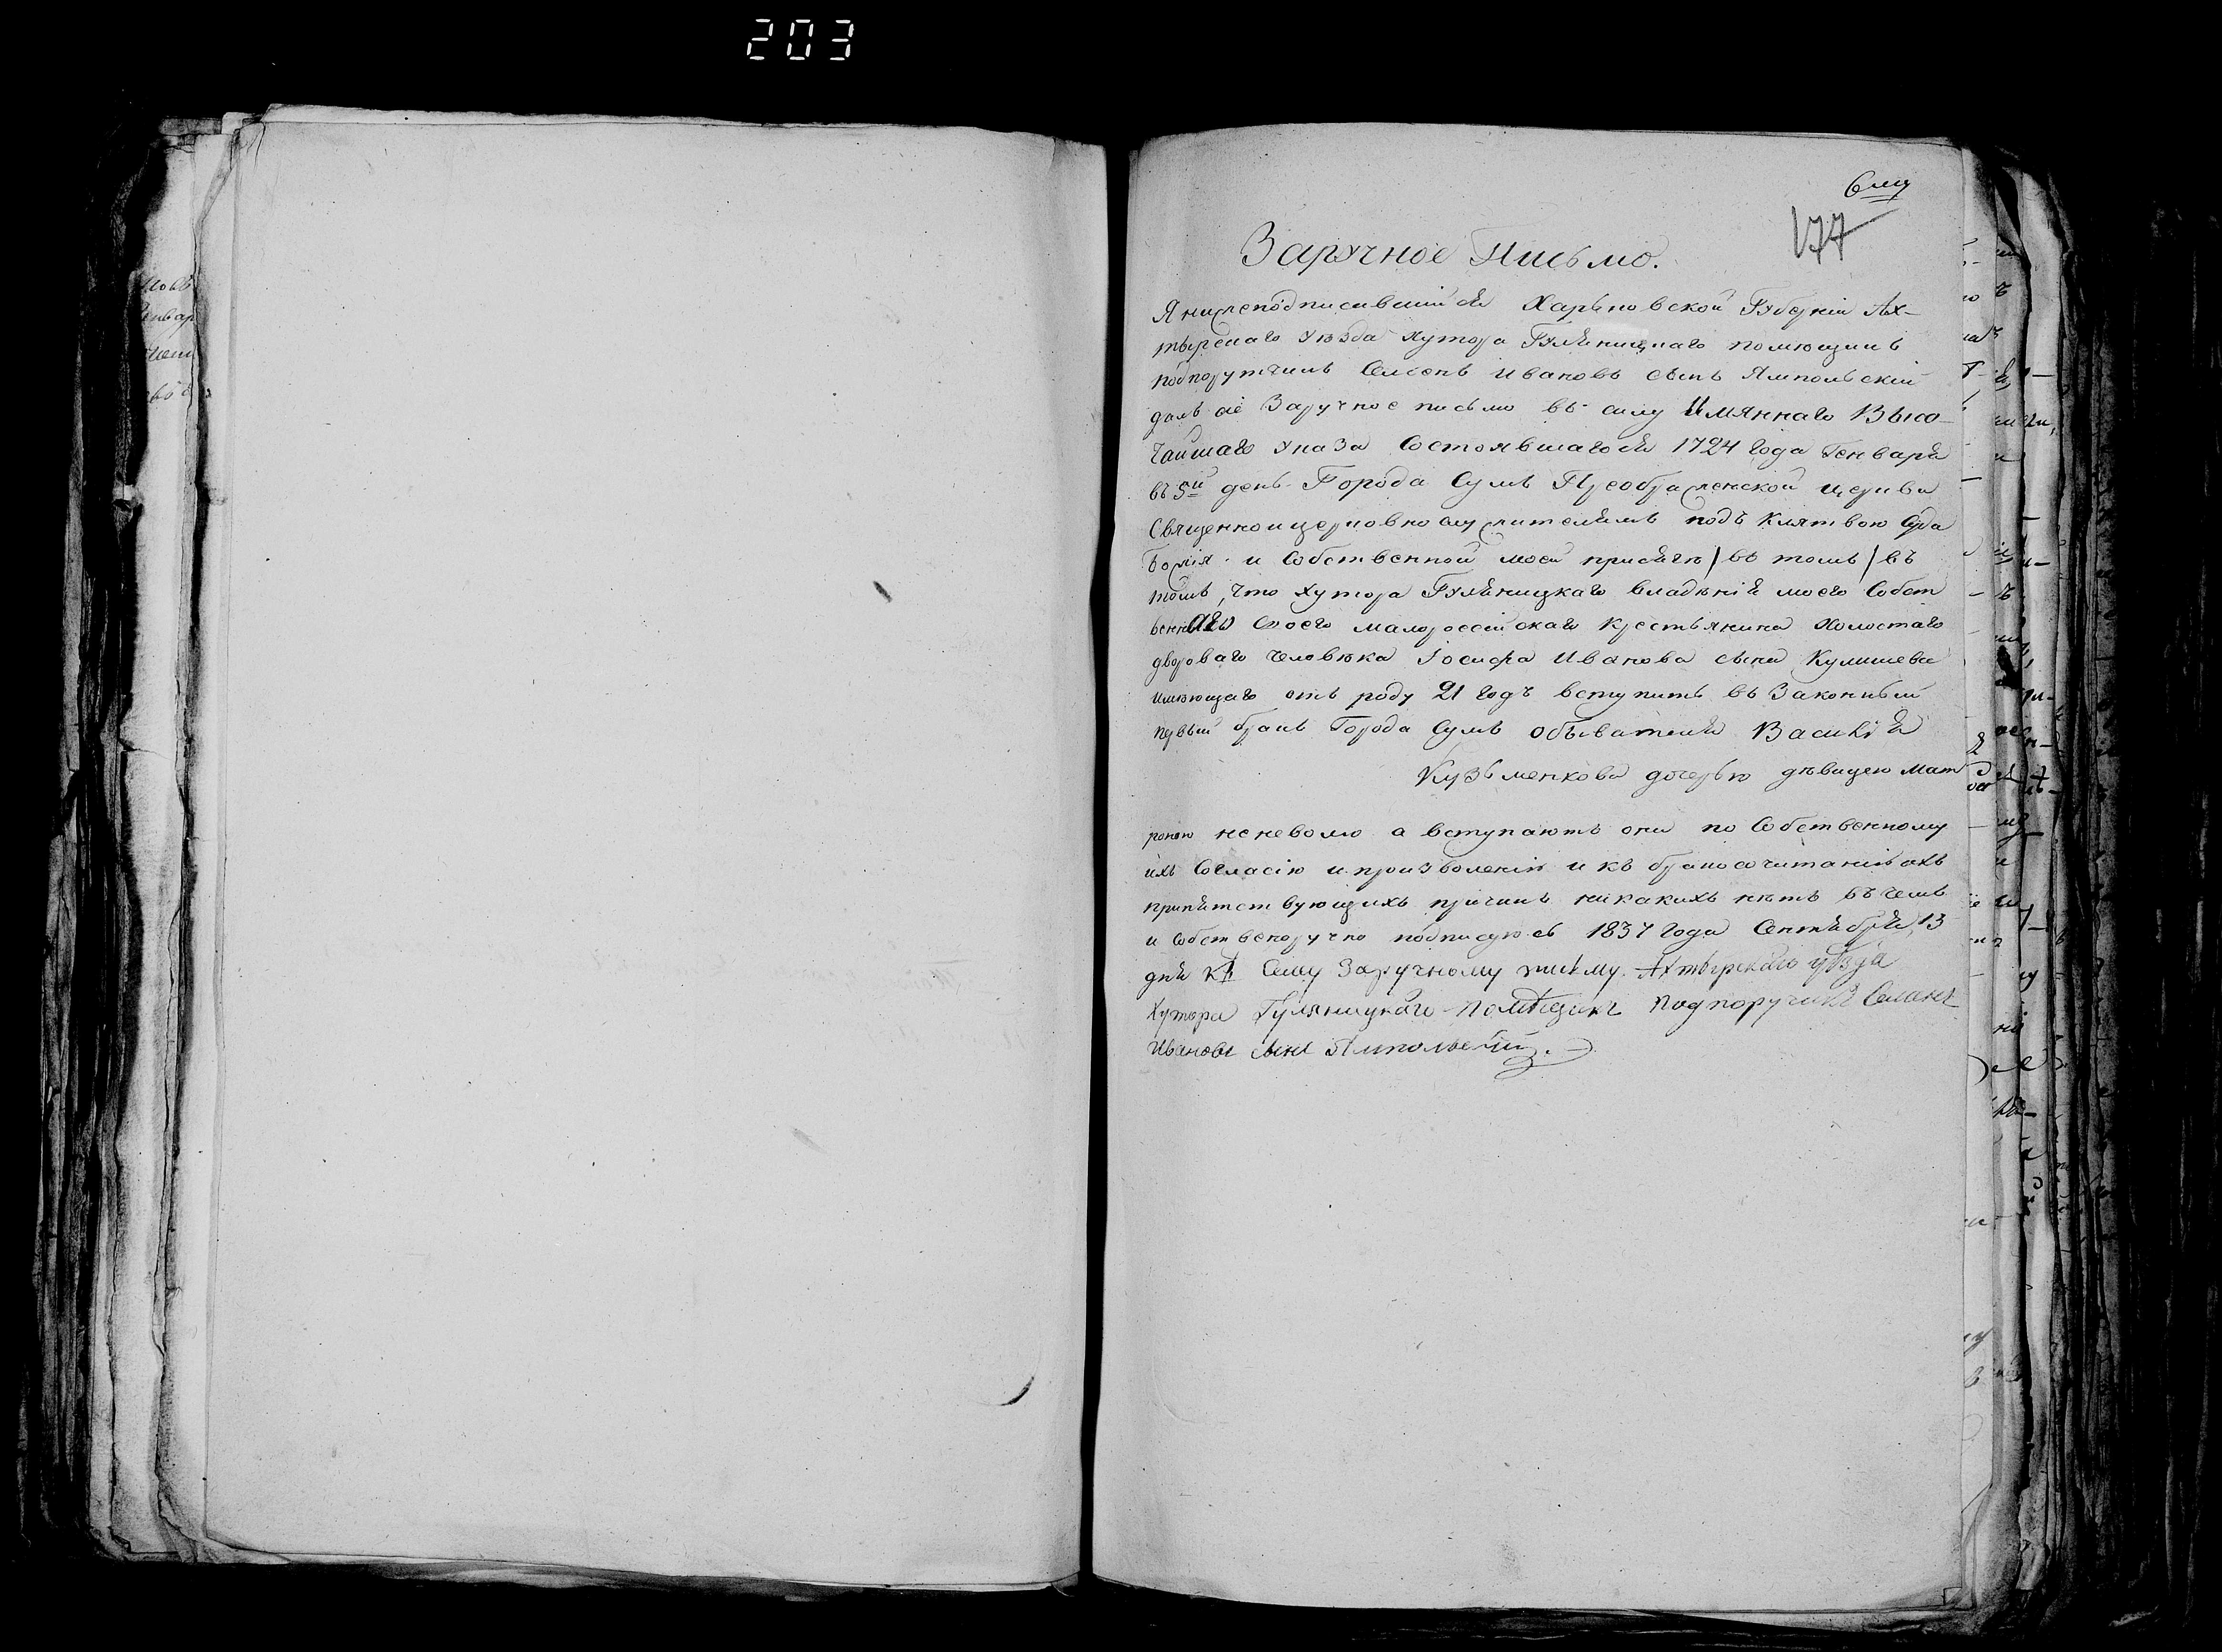 203
177
Заручное Письмо.
Я нижеподписавшийся Харьковской Губерніи Ах-
тырскаго уѣзда хутора Гуляницкаго помѣщикъ
подпорутчикъ Семенъ Ивановъ сынъ Ямпольскій
далъ сіе Заручное письмо въ силу Имяннаго Высо-
чайшаго указа Состоявшагося 1724 года Генваря
въ 5й день Города Сумъ Преображенской церкви
Священноицерковнослужителямъ подъ Клятвою Суда
Божія и Собственной моей присяги /въ томъ/ въ
томъ, что Хутора Гуляницкаго владѣнія моего Собст
веннаго своего малороссийскаго крестьянина Холостаго
двороваго человѣка Іосифа Иванова сына Кулишева
имѣющаго отъ роду 21 годъ вступить въ Законный
первый бракъ Города Сумъ обывателя Василія
Кузьменкова дочерью дѣвицею Мат
роною неневолю а вступаютъ они по Собственному
ихъ Согласію и произволенію и къ бракосочитанію ихъ
припятствующихъ причинъ никакихъ нѣтъ въ чемъ
и собственоручно подписуюсь 1837 года Сентября 13
дня къ Сему Заручному письму Ахтырскаго уѣзда
Хутора Гуляницкаго помѣщикъ подпоручикъ Семенъ
Ивановъ сынъ Ямпольскій.